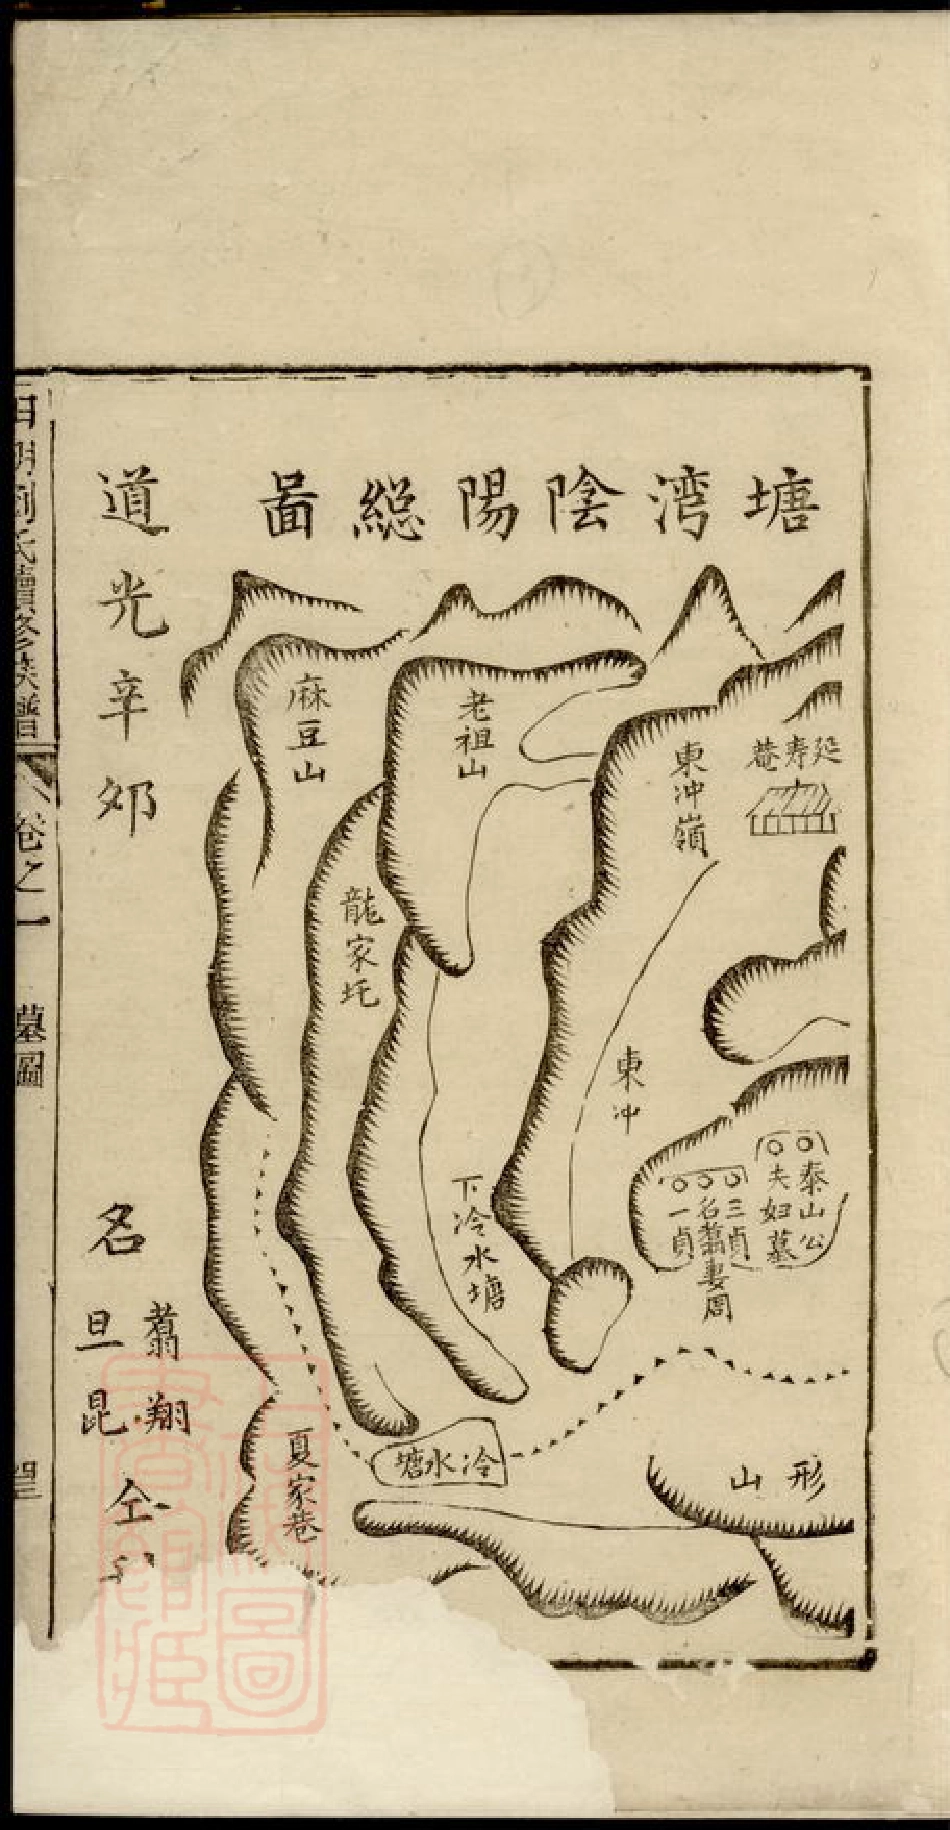 塘湾陰陽総啚
延寿菴
東冲嶺
老祖山
麻豆山
龍家坵
東冲
下冷水塘
泰山公
夫妇墓
三貞
名翥妻周
一貞
形山
冷水塘
夏家巷
道光辛夘
名
翥翔
旦昆
仝
劉氏續修族譜
卷之一
墓圖